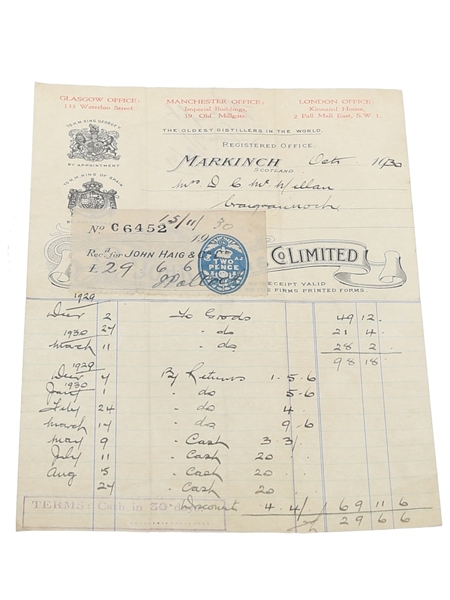 GLASGOW OFFICE: MANCHESTER OFFICE: LONDON OFFICE:
Waterloo Street. Imperial Buildings, Kinnaird House,
Old Millgate. 2 Pall Mall East, S.W.1.
TO H.M. KING GEORGE V
BY APPOINTMENT
TO H.M. KING OF SPAIN
THE OLDEST DISTILLERS IN THE WORLD.
REGISTERED OFFICE.
MARKINCH Oct 11/30
SCOTLAND
Mrs D C McMillan
No C 6452 15/11/1930
Recd for JOHN HAIG &
£ 29 6 6
TWO PENCE
Co LIMITED
RECEIPT VALID
FIRMS PRINTED FORMS.
1929
Decr 2 To Goods 49 12
1930 24 " do 21 4
March 11 " do 28 2
98 18
1929
Decr 4 By Returns 1 5 6
1930
Jany 1 " do 5 6
Feby 24 " do 4
March 14 " do 9 6
May 9 " Cash 3 3/
July 11 " Cash 20
Aug 5 " Cash 20
24 " Cash 20
TERMS: Cash in 30 Discount 4 4/ 69 11 6
29 6 6